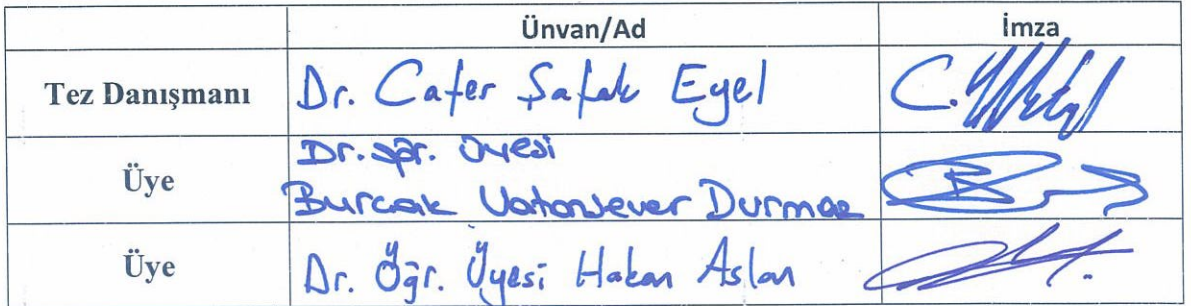 Ünvan/Ad İmza
Tez Danışmanı Dr. Cafer Şafak Eyel
Üye Dr. Öğr. Üyesi
Burcak Vatansever Durmaz
Üye Dr. Öğr. Üyesi Hakan Aslan